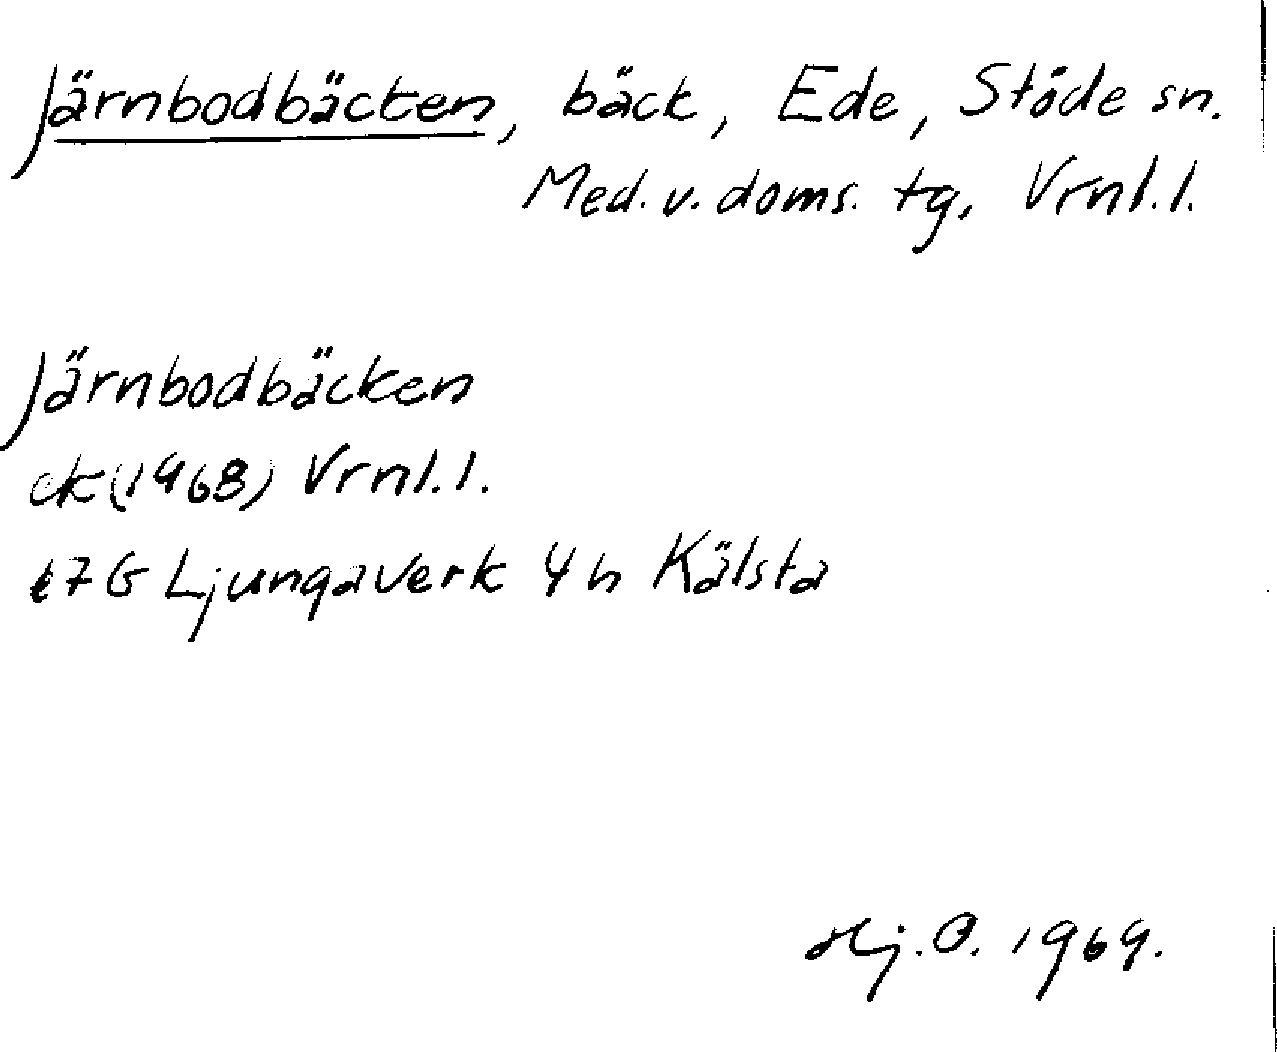 Järnbodbäcken, bäck, Ede, Stöde sn.
Med. v. doms. tg, Vrnl.l.
Järnbodbäcken
ek (1968) Vrnl.l.
17G Ljungaverk 4h Kälsta
Hj.O. 1969.